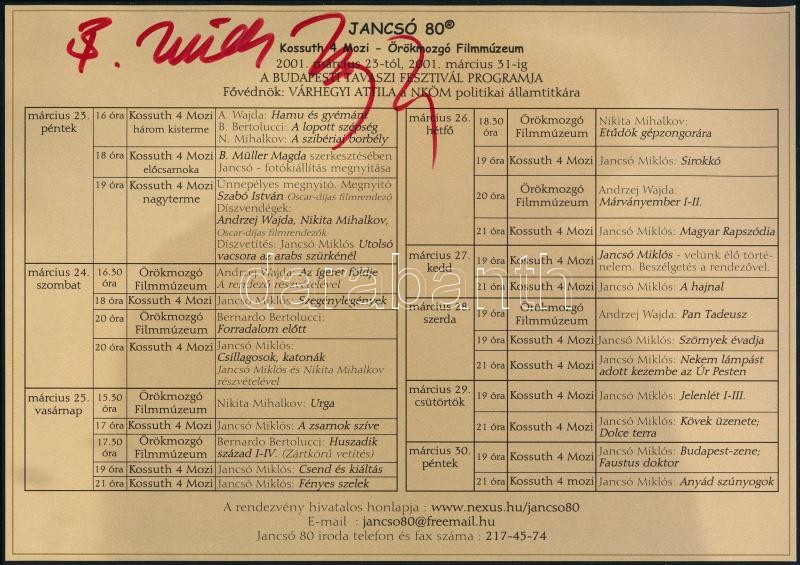 JANCSÓ 80®
Kossuth 4 Mozi - Örökmozgó Filmmúzeum
2001. március 23-tól, 2001. március 31-ig
A BUDAPESTI TAVASZI FESZTIVÁL PROGRAMJA
Fővédnök: VÁRHEGYI ATTILA a NKÖM politikai államtitkára
március 23. péntek
16 óra Kossuth 4 Mozi három kisterme
A. Wajda: Hamu és gyémánt
B. Bertolucci: A lopott szépség
N. Mihalkov: A szibériai borbély
18 óra Kossuth 4 Mozi előcsarnoka
B. Müller Magda szerkesztésében
Jancsó - fotókiállítás megnyitása
19 óra Kossuth 4 Mozi nagyterme
Ünnepélyes megnyitó. Megnyitó
Szabó István Oscar-díjas filmrendező
Díszvendégek:
Andrzej Wajda, Nikita Mihalkov,
Oscar-díjas filmrendezők
Díszvetítés: Jancsó Miklós: Utolsó
vacsora az arabs szürkénél
március 24. szombat
16.30 óra Örökmozgó Filmmúzeum
Andrzej Wajda: Az ígéret földje
A rendező részvételével
18 óra Kossuth 4 Mozi Jancsó Miklós: Szegénylegények
20 óra Örökmozgó Filmmúzeum
Bernardo Bertolucci:
Forradalom előtt
20 óra Kossuth 4 Mozi
Jancsó Miklós:
Csillagosok, katonák
Jancsó Miklós és Nikita Mihalkov
részvételével
március 25. vasárnap
15.30 óra Örökmozgó Filmmúzeum
Nikita Mihalkov: Urga
17 óra Kossuth 4 Mozi Jancsó Miklós: A zsarnok szíve
17.30 óra Örökmozgó Filmmúzeum
Bernardo Bertolucci: Huszadik
század I-IV. (Zártkörű vetítés)
19 óra Kossuth 4 Mozi Jancsó Miklós: Csend és kiáltás
21 óra Kossuth 4 Mozi Jancsó Miklós: Fényes szelek
március 26. hétfő
18.30 óra Örökmozgó Filmmúzeum
Nikita Mihalkov:
Etűdök gépzongorára
19 óra Kossuth 4 Mozi Jancsó Miklós: Sirokkó
20 óra Örökmozgó Filmmúzeum
Andrzej Wajda:
Márványember I-II.
21 óra Kossuth 4 Mozi Jancsó Miklós: Magyar Rapszódia
március 27. kedd
19 óra Kossuth 4 Mozi
Jancsó Miklós - velünk élő törté-
nelem. Beszélgetés a rendezővel.
21 óra Kossuth 4 Mozi Jancsó Miklós: A hajnal
március 28. szerda
19 óra Örökmozgó Filmmúzeum
Andrzej Wajda: Pan Tadeusz
19 óra Kossuth 4 Mozi Jancsó Miklós: Szörnyek évadja
21 óra Kossuth 4 Mozi
Jancsó Miklós: Nekem lámpást
adott kezembe az Úr Pesten
március 29. csütörtök
19 óra Kossuth 4 Mozi Jancsó Miklós: Jelenlét I-III.
21 óra Kossuth 4 Mozi
Jancsó Miklós: Kövek üzenete;
Dolce terra
március 30. péntek
19 óra Kossuth 4 Mozi
Jancsó Miklós: Budapest-zene;
Faustus doktor
21 óra Kossuth 4 mozi Jancsó Miklós: Anyád szúnyogok
A rendezvény hivatalos honlapja : www.nexus.hu/jancso80
E-mail : jancso80@freemail.hu
Jancsó 80 iroda telefon és fax száma : 217-45-74
darabanth